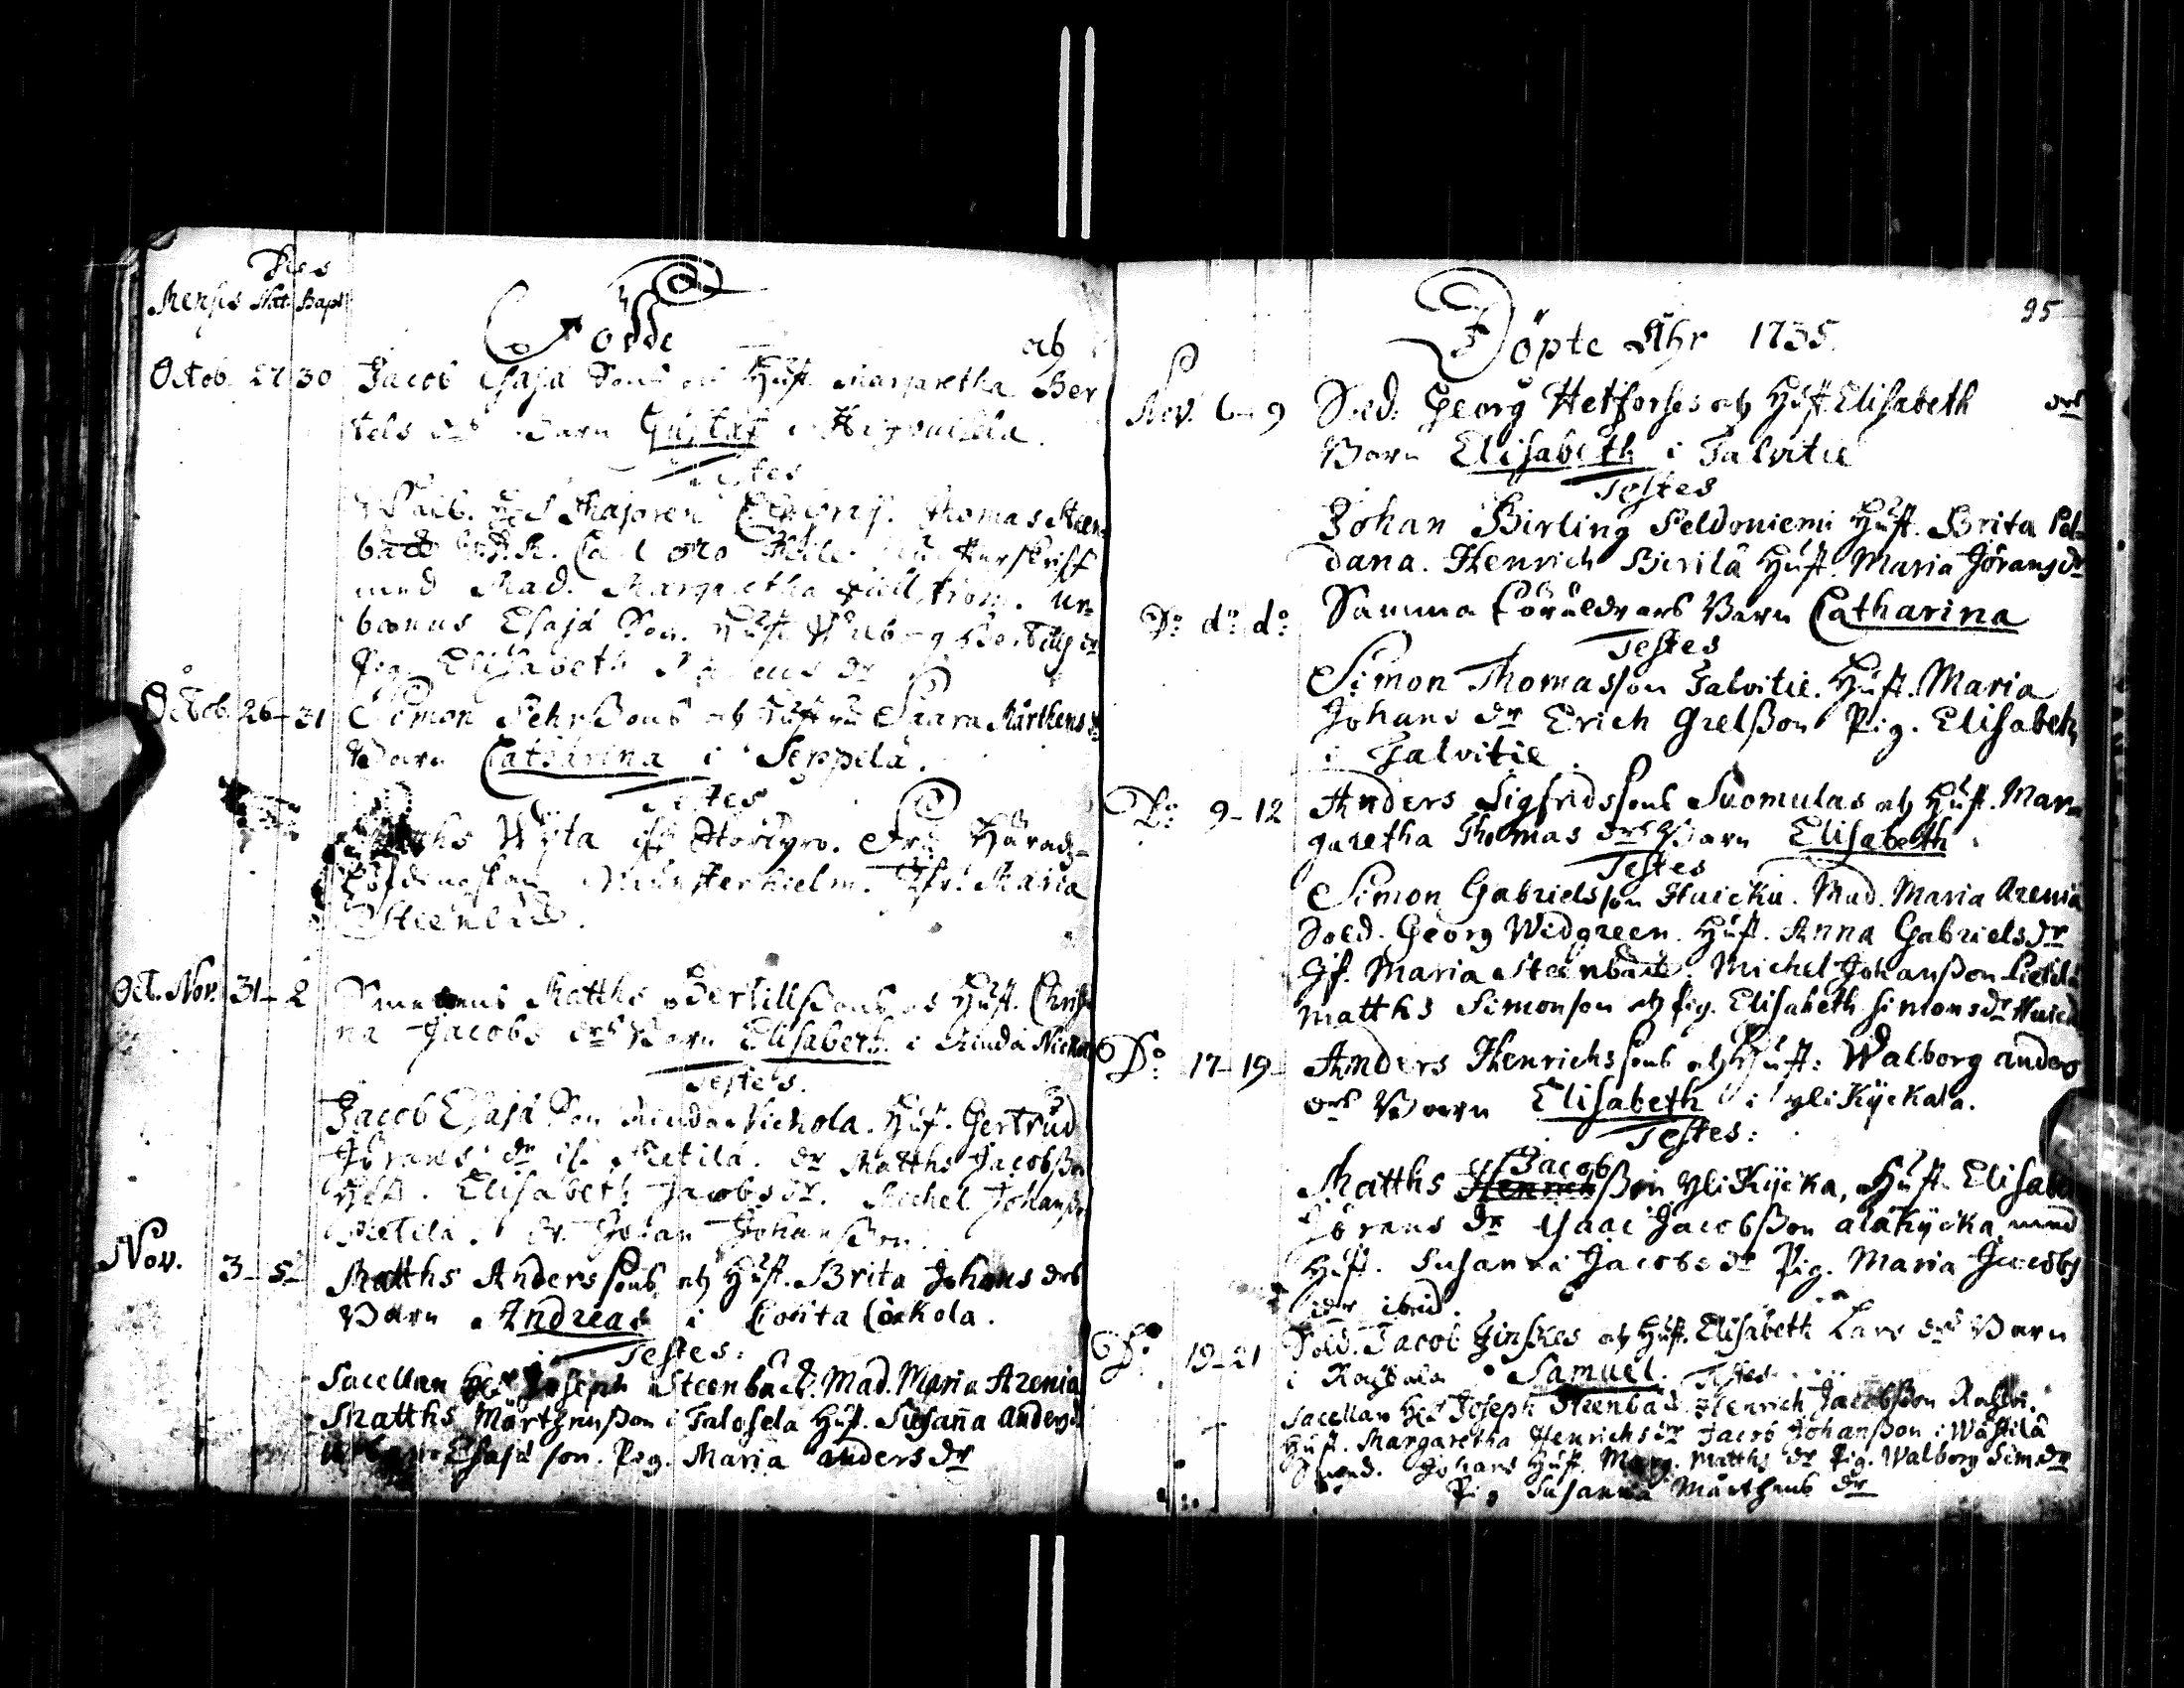 Dies
Mensis Nat. Bapt
Födde och
Octob. 27 30 Jacob Esajæ Sons och Hust. Margaretha Ber
tels drs Barn Gustaf i
Testes
Majoren Thomas Steen
bäck Carl
med Mad. Margaretha
banus Esajæ Son. Hust. Walborg Bertils dr
Pig. Elisabeth dr
Octob. 26-31 Simon Pehrßons och Hustru Saara Mårthens dr
Barn Catharina i Seppelä.
Testes
Wyta ifr Storkyro. Fru Härads
höfdingskan Munsterhielm. Jfr. Maria
Steenbäck.
Oct. Nov. 31-2 Matths Bertillßons och Hust. Christi
na Jacobs drs Barn Elisabeth i Rinda Nickola
Testes.
Jacob Esajæ Son Rinda Nickola. Hust. Gertrud
Jörans dr if. Pietilä. dr Matths Jacobßon
Hust. Elisabeth Jacobs dr. Michel Johanß
Pietilä. dr Johan Johanßon.
Nov. 3-5 Matths Anderssons och Hust. Brita Johans drs
Barn Andreas i Couta Cockola.
Testes:
Sacellan Hr Joseph Steenbäck. Mad. Maria Arenia
Matths Mårthenßon i Talosela Hust. Susanna Anders dr
Esajæ son. Pig. Maria anders dr
95
Döpte Åhr 1735.
Nov. 6-9 Sold. Georg Hetforses och Hust Elisabeth drs
Barn Elisabeth i Talvitie
Testes
Johan Birling Peldoniemi Hust. Brita Pel
dana. Henrich Birilä Hust. Maria Jörans dr
Do do do Samma Föräldrars Barn Catharina
Testes
Simon Thomasson Talvitie. Hust. Maria
Johans dr Erich Grelsßon Pig. Elisabeth
i Talvitie.
Do 9-12 Anders Sigfridssons Suomulas och Hust. Mar
garetha Thomas drs Barn Elisabeth
Testes
Simon Gabrielsson Huicku. Mad. Maria Arenia
Sold. Georg Widgreen. Hust. Anna Gabriels dr
Jf. Maria Steenbäck. Michel Johanßon Pietilä
Matths Simonson och pig. Elisabeth Simons dr Huick
Do 17-19 Anders Henrichssons och Hust: Walborg anders
drs Barn Elisabeth i yli Kyckala.
Testes:
Jacob
Matths Henrichßon yli Kycka, Hust. Elisabe
Jörans dr Isaac Jacobßon alakycka, med
Hust. Susanna Jacobs dr Pig. Maria Jacobs
dr ibid.
Do 19-21 Sold. Jacob Ginskes och Hust. Elisabeth Lars drs Barn
i Samuel. Testes
Sacellan Hr Joseph Steenbäck. Henrich Jacobßon
Hust. Margaretha Henrichs dr Jacob Johanßon i Wästilä
Johans Hust. Marg. Matths dr Pig. Walborg Sim dr
Pig Susanna Mårthens dr